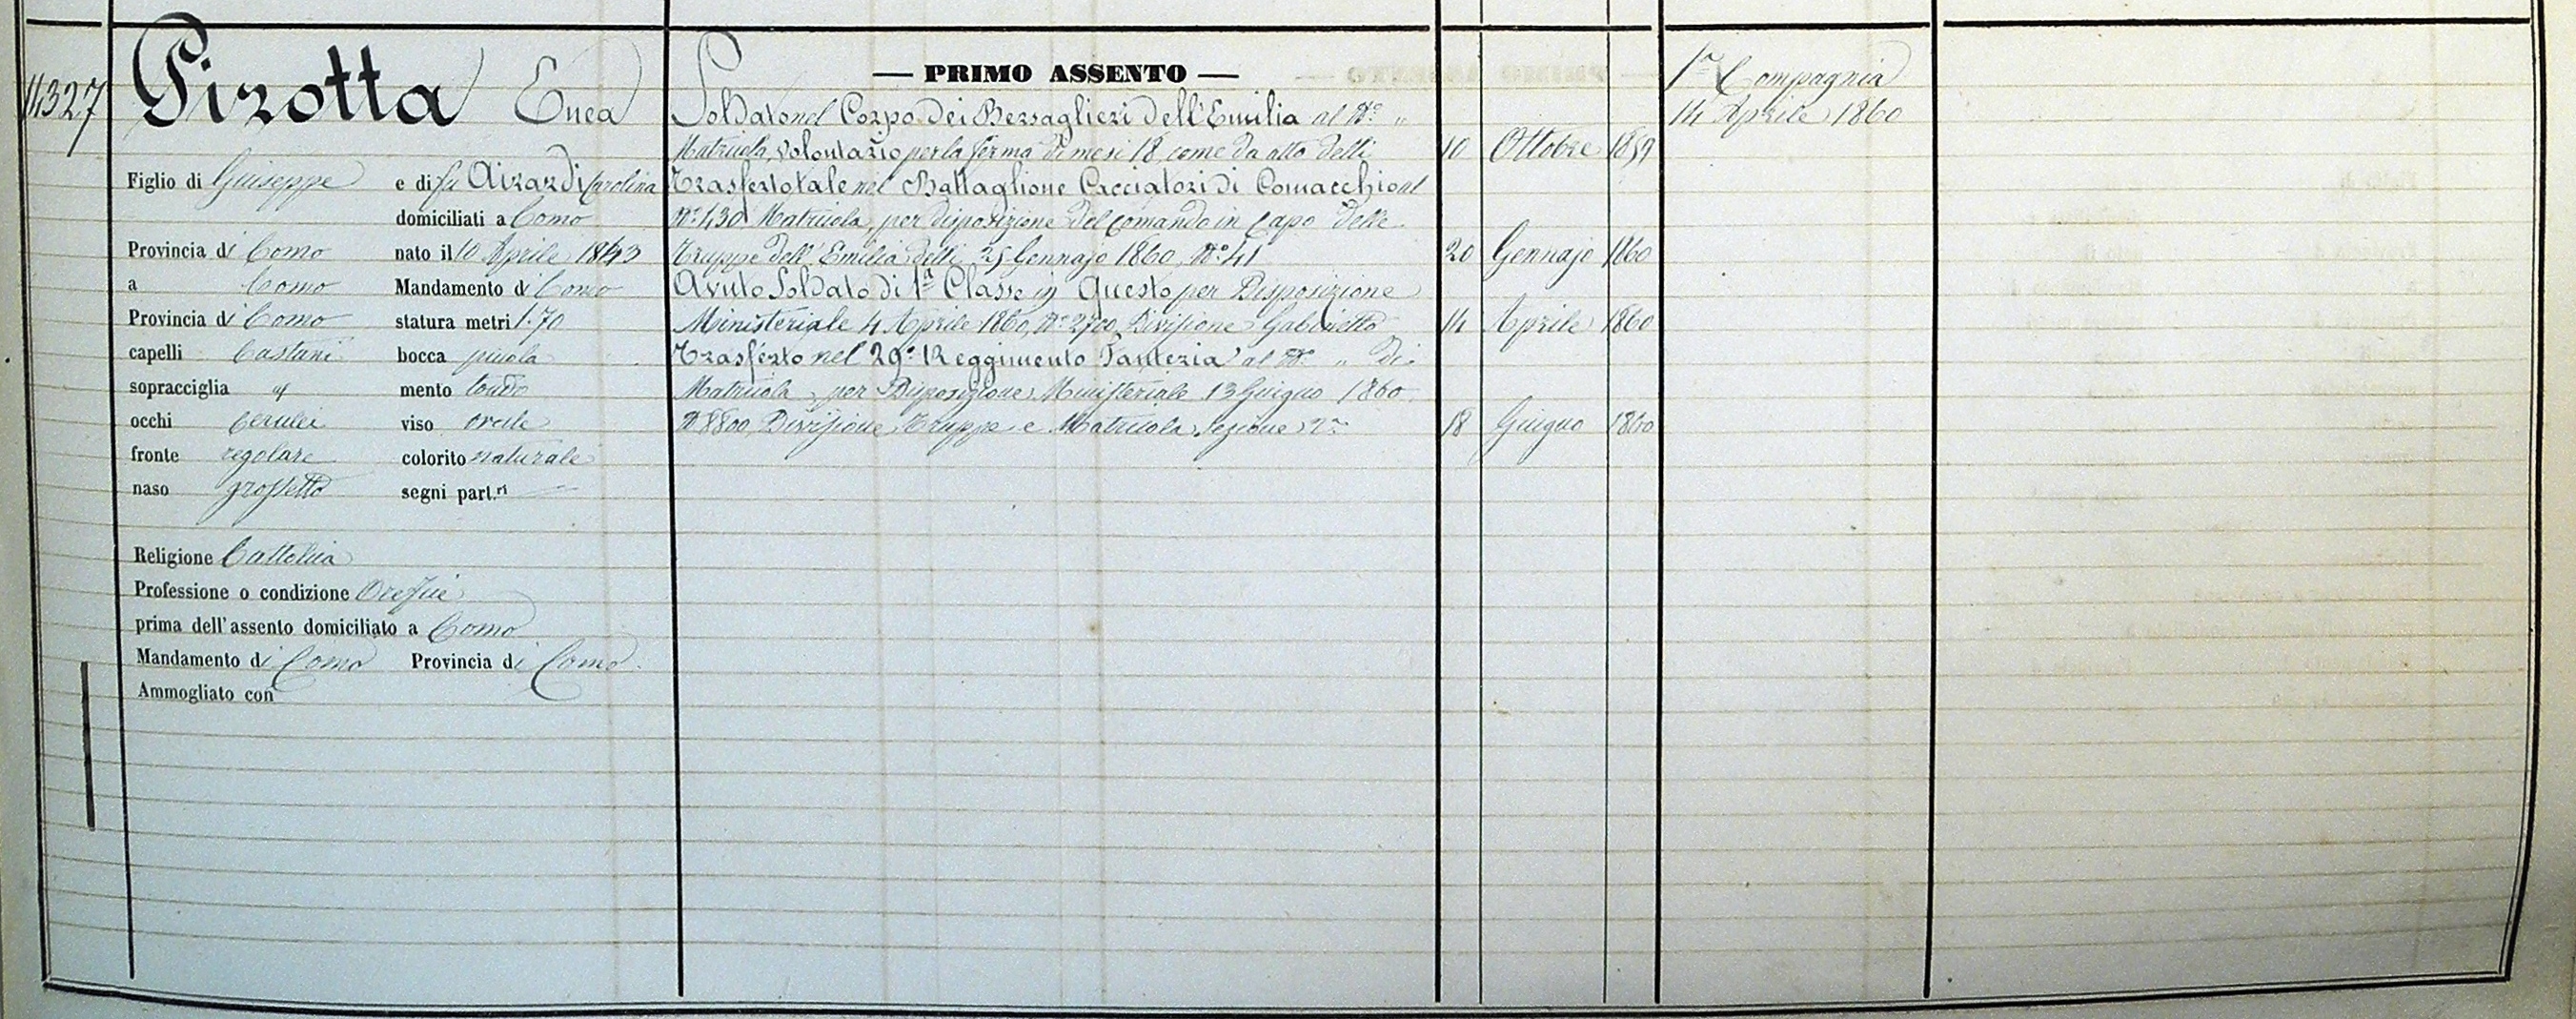 14327
Pirotta Enea
Figlio di Giuseppe e di fu Airardi Carolina
domiciliati a Como
Provincia di Como nato il 10 Aprile 1843
a Como Mandamento di Como
Provincia di Como statura metri 1.70
capelli Castani bocca piccola
sopracciglia id mento tondo
occhi Cerulei viso ovale
fronte regolare colorito naturale
naso grossetto segni part.ri
Religione Cattolica
Professione o condizione Orefice
prima dell'assento domiciliato a Como
Mandamento di Como Provincia di Como
Ammogliato con
— PRIMO ASSENTO —
Soldato nel Corpo dei Bersaglieri dell'Emilia al N.° "
Matricola, volontario per la ferma di mesi 18, come da atto delli 10 Ottobre 1859
Trasferto tale nel Battaglione Cacciatori di Comacchio al
N.° 430 Matricola, per disposizione del Comando in Capo delle
Truppe dell'Emilia delli 25 Gennajo 1860, N.° 41 20 Gennajo 1860
Avuto Soldato di 1a Classe in Questo per Disposizione
Ministeriale 4 Aprile 1860, N.° 2700, Divisione Gabinetto 14 Aprile 1860
Trasferto nel 29° Reggimento Fanteria al N.° " di
Matricola, per Disposizione Ministeriale 13 Giugno 1860
N 8800, Divisione Truppe e Matricola, Sezione 2a 18 Giugno 1860
1a Compagnia
14 Aprile 1860